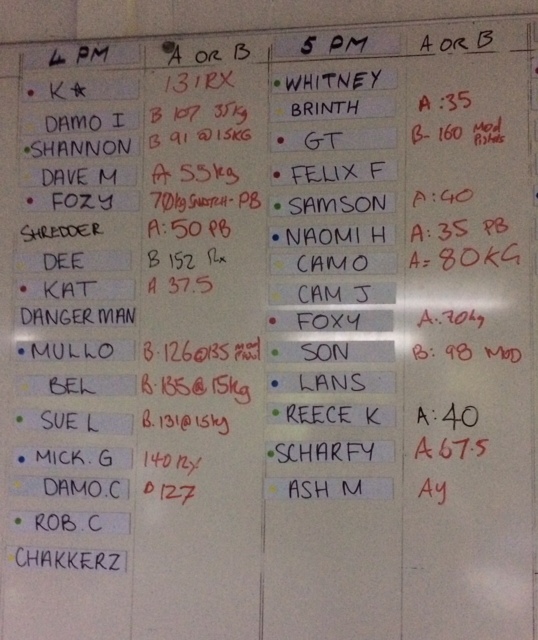 4 PM A OR B
K☆ 131RX
DAMO I B 107 35kg
SHANNON B 91 @ 15KG
DAVE M A 55kg
FOZY 70kg SNATCH - PB
SHREDDER A: 50 PB
DEE B 152 Rx
KAT A 37.5
DANGERMAN
MULLO B. 126@135 mod
BEL B. 135@15kg
SUE L B. 131@15kg
MICK. G 140 Rx
DAMO.C 127
ROB. C
CHAKKERZ
5 PM A OR B
WHITNEY
BRINTH A: 35
GT B- 160 Mod Pistols
FELIX F
SAMSON A: 40
NAOMI H A: 35 PB
CAMO A= 80KG
CAM J
FOXY A: 70kg
SON B: 98 MOD
LANS
REECE K A: 40
SCHARFY A 67.5
ASH M